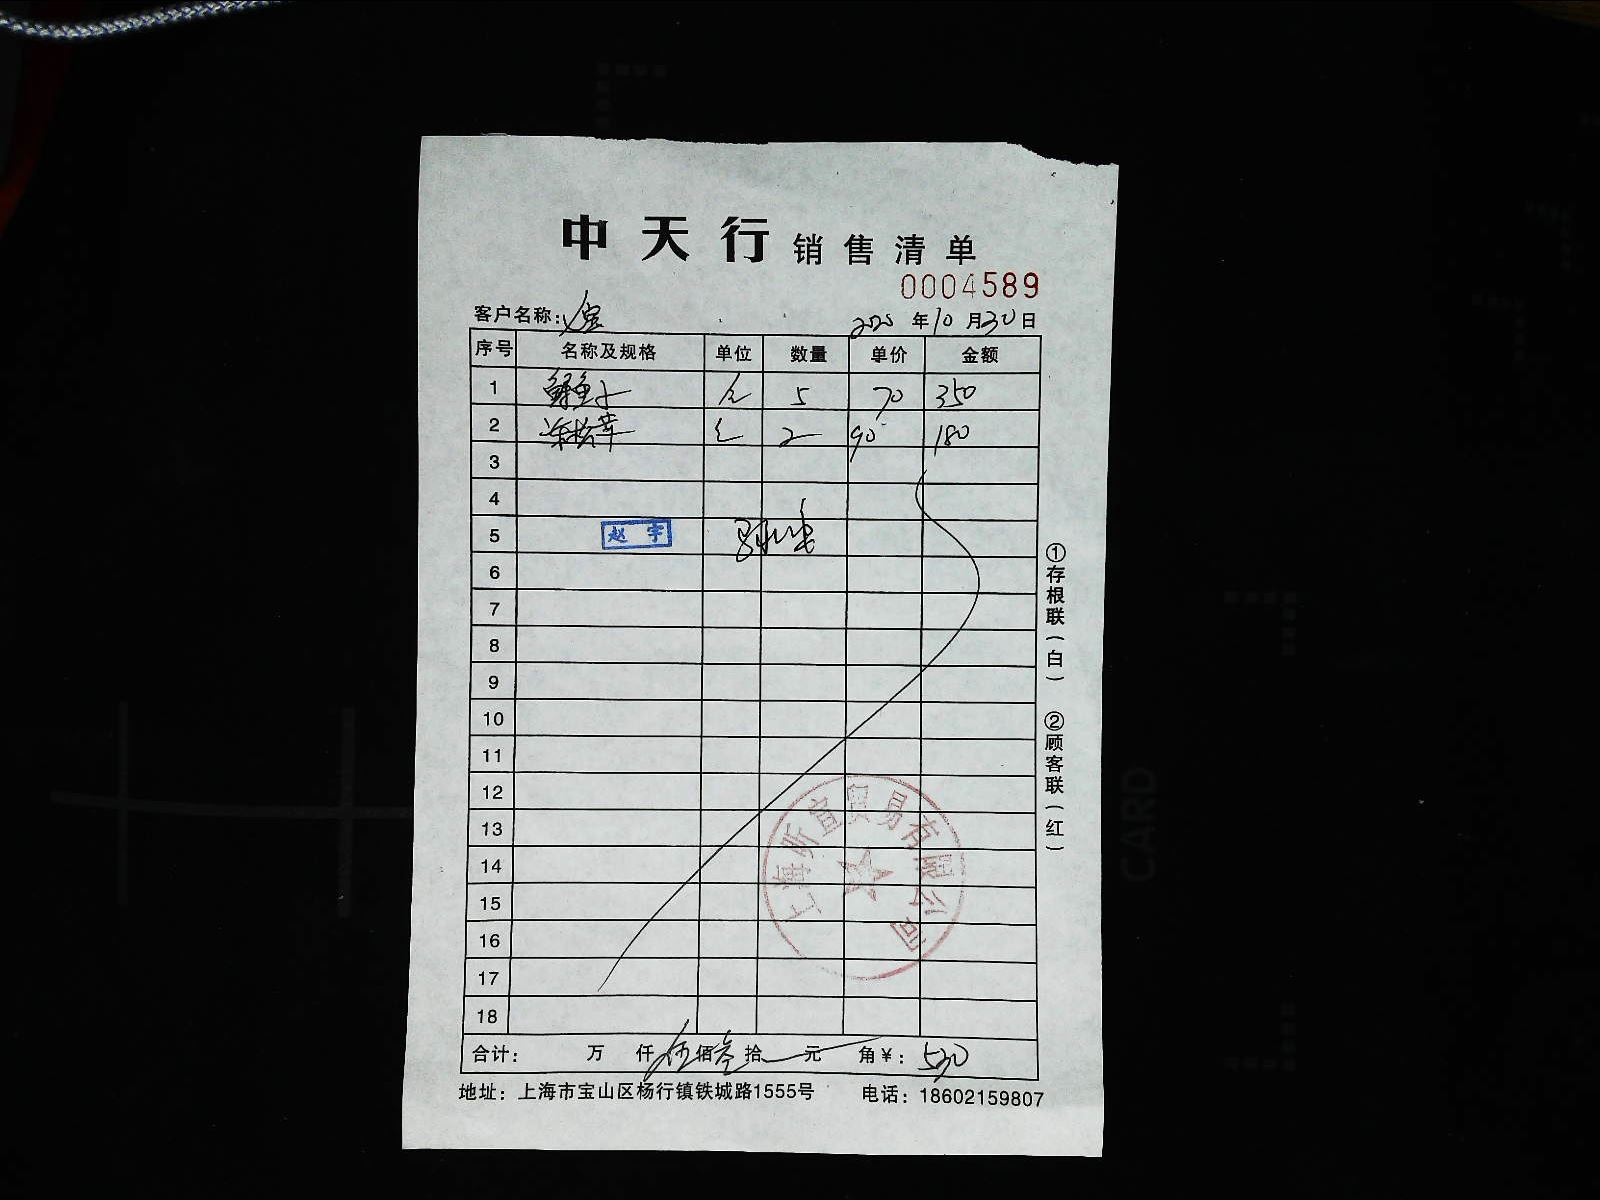 中天行销售清单
0004589
客户名称: 2020年10月30日
序号 名称及规格 单位 数量 单价 金额
1 5 70 350
2 冻松茸 2 90 180
3
4
5 赵宇
6
7
8
9
10
11
12
13
14
15
16
17
18
上海昕宜贸易有限公司
合计: 万 仟 伍佰叁拾 元 角¥: 530
地址: 上海市宝山区杨行镇铁城路1555号 电话: 18602159807
①存根联(白) ②顾客联(红)